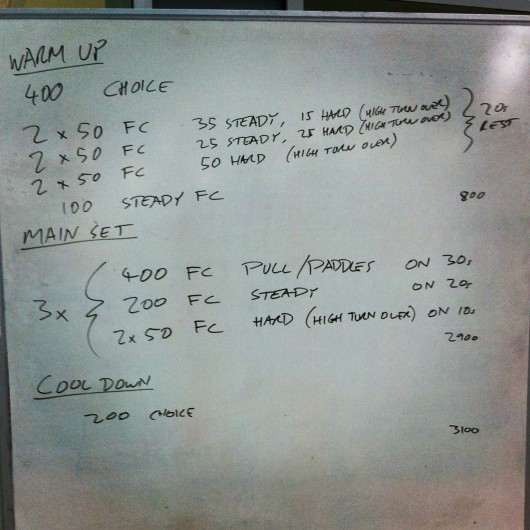 WARM UP
400 CHOICE
2 x 50 FC 35 STEADY, 15 HARD (HIGH TURN OVER)
2 x 50 FC 25 STEADY, 25 HARD (HIGH TURN OVER)
2 x 50 FC 50 HARD (HIGH TURN OVER)
20s REST
100 STEADY FC
800
MAIN SET
3x
400 FC PULL/PADDLES ON 30s
200 FC STEADY ON 20s
2x 50 FC HARD (HIGH TURN OVER) ON 10s
2900
COOL DOWN
200 CHOICE
3100